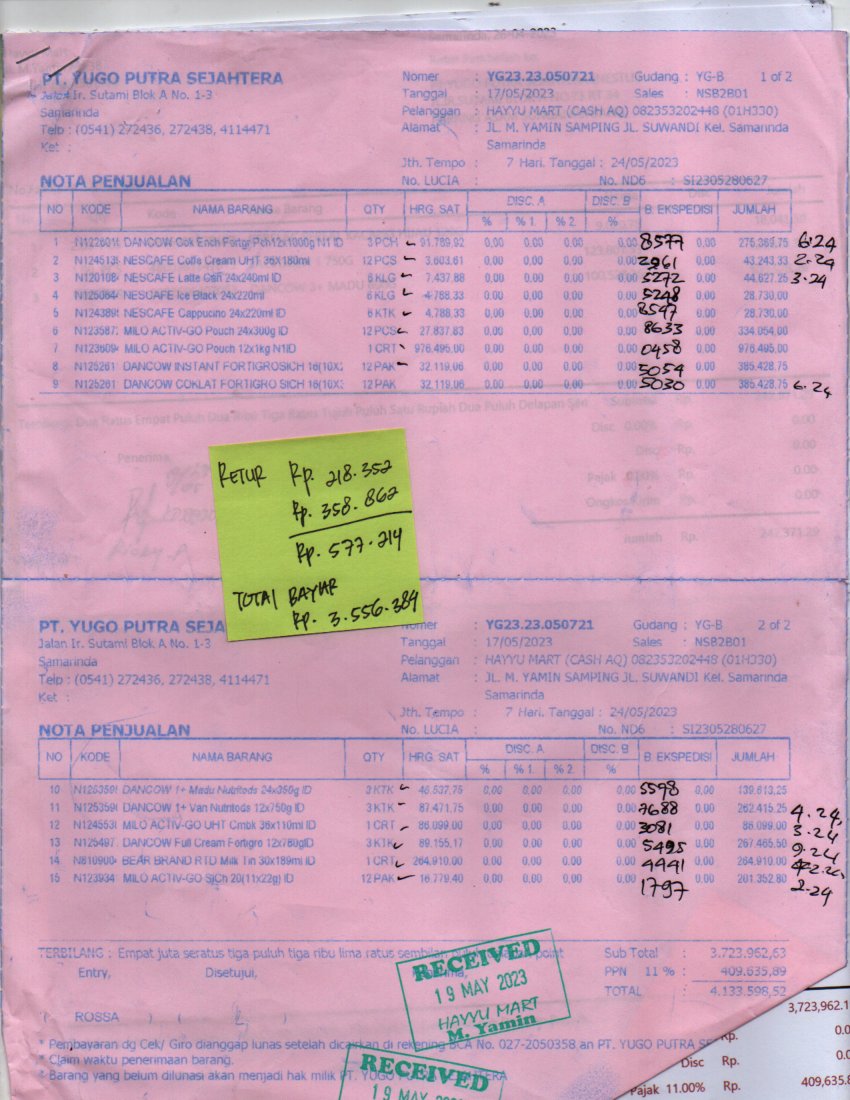 PT. YUGO PUTRA SEJAHTERA
Jalan Ir. Sutami Blok A No. 1-3
Samarinda
Telp : (0541) 272436, 272438, 4114471
Ket :
Nomer : YG23.23.050721 Gudang : YG-B 1 of 2
Tanggal : 17/05/2023 Sales : NSB2B01
Pelanggan : HAYYU MART (CASH AQ) 082353202448 (01H330)
Alamat : JL. M. YAMIN SAMPING JL. SUWANDI Kel. Samarinda
Samarinda
Jth. Tempo : 7 Hari. Tanggal : 24/05/2023
NOTA PENJUALAN No. LUCIA : No. ND6 : SI2305280627
NO KODE NAMA BARANG QTY HRG. SAT DISC. A DISC. B B. EKSPEDISI JUMLAH
% % 1. % 2. %
1 DANCOW Cok Ench Fortgr Pch12x1000g N1 ID 3 PCH 91.789.92 0.00 0.00 0.00 0.00 8577 0.00 275,369.75 6.24
2 NESCAFE Coffe Cream UHT 36X180ml 12 PCS 3,603.61 0.00 0.00 0.00 0.00 2961 0.00 43,243.33 2.24
3 NESCAFE Latte Can 24x240ml ID 6 KLG 7,437.88 0.00 0.00 0.00 0.00 5272 0.00 44,627.25 3.24
4 NESCAFE Ice Black 24x220ml 6 KLG 4,788.33 0.00 0.00 0.00 0.00 5248 0.00 28,730.00
5 NESCAFE Cappucino 24x220ml ID 6 KTK 4,788.33 0.00 0.00 0.00 0.00 8547 0.00 28,730.00
6 MILO ACTIV-GO Pouch 24x300g ID 12 PCS 27,837.83 0.00 0.00 0.00 0.00 8633 0.00 334,054.00
7 MILO ACTIV-GO Pouch 12x1kg N1ID 1 CRT 976,495.00 0.00 0.00 0.00 0.00 0458 0.00 976,495.00
8 N125261 DANCOW INSTANT FORTIGROSICH 16(10X 12 PAK 32,119.06 0.00 0.00 0.00 0.00 5054 0.00 385,428.75
9 N125261 DANCOW COKLAT FORTIGRO SICH 16(10X 12 PAK 32,119.06 0.00 0.00 0.00 0.00 5030 0.00 385,428.75 6.24
RETUR Rp. 218.352
Rp. 358.862
Rp. 577.214
TOTAL BAYAR
Rp. 3.556.384
PT. YUGO PUTRA SEJA
Jalan Ir. Sutami Blok A No. 1-3
Samarinda
Telp : (0541) 272436, 272438, 4114471
Ket :
Nomer : YG23.23.050721 Gudang : YG-B 2 of 2
Tanggal : 17/05/2023 Sales : NSB2B01
Pelanggan : HAYYU MART (CASH AQ) 082353202448 (01H330)
Alamat : JL. M. YAMIN SAMPING JL. SUWANDI Kel. Samarinda
Samarinda
Jth. Tempo : 7 Hari. Tanggal : 24/05/2023
NOTA PENJUALAN No. LUCIA : No. ND6 : SI2305280627
NO KODE NAMA BARANG QTY HRG. SAT DISC. A DISC. B B. EKSPEDISI JUMLAH
% % 1. % 2. %
10 DANCOW 1+ Madu Nutritods 24x350g ID 3 KTK 46,537.75 0.00 0.00 0.00 0.00 5598 0.00 139,613.25
11 DANCOW 1+ Van Nutritods 12x750g ID 3 KTK 87,471.75 0.00 0.00 0.00 0.00 7688 0.00 262,415.25 4.24
12 MILO ACTIV-GO UHT Cmbk 36x110ml ID 1 CRT 86,099.00 0.00 0.00 0.00 0.00 3081 0.00 86,099.00 3.24
13 N125497 DANCOW Full Cream Fortigro 12x780gID 3 KTK 89,155.17 0.00 0.00 0.00 0.00 5495 0.00 267,465.50 9.24
14 BEAR BRAND RTD Milk Tin 30x189ml ID 1 CRT 264,910.00 0.00 0.00 0.00 0.00 4441 0.00 264,910.00
15 N123934 MILO ACTIV-GO SICh 20(11x22g) ID 12 PAK 16,779.40 0.00 0.00 0.00 0.00 1797 0.00 201,352.80 2.24
TERBILANG : Empat juta seratus tiga puluh tiga ribu lima ratus sembilan point
Entry, Disetujui,
Sub Total : 3.723.962,63
PPN 11 % : 409.635,89
TOTAL : 4.133.598,52
RECEIVED
19 MAY 2023
HAYYU MART
M. Yamin
( ROSSA ) ( )
* Pembayaran dg Cek/ Giro dianggap lunas setelah dicairkan di rekening BCA No. 027-2050358 an PT. YUGO PUTRA SE
* Claim waktu penerimaan barang.
* Barang yang belum dilunasi akan menjadi hak milik PT. YUGO
RECEIVED
19 MAY
3,723,962.1
Rp. 0.0
Disc Rp. 0.0
Pajak 11.00% Rp. 409,635.8